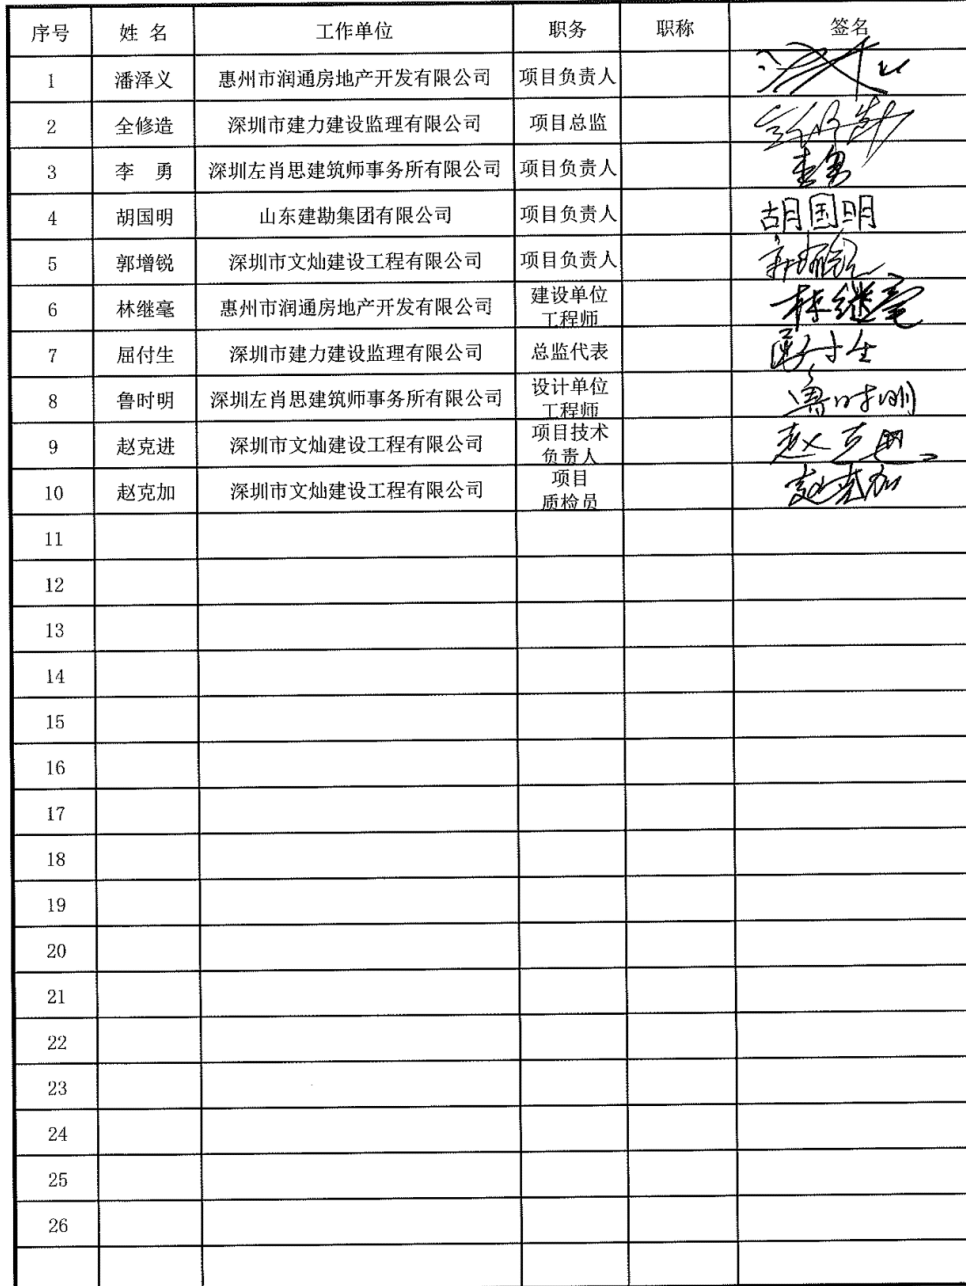 序号 姓 名 工作单位 职务 职称 签名
1 潘泽义 惠州市润通房地产开发有限公司 项目负责人
2 全修造 深圳市建力建设监理有限公司 项目总监
3 李 勇 深圳左肖思建筑师事务所有限公司 项目负责人 李勇
4 胡国明 山东建勘集团有限公司 项目负责人 胡国明
5 郭增锐 深圳市文灿建设工程有限公司 项目负责人
6 林继毫 惠州市润通房地产开发有限公司 建设单位 林继毫
工程师
7 屈付生 深圳市建力建设监理有限公司 总监代表
8 鲁时明 深圳左肖思建筑师事务所有限公司 设计单位 鲁时明
工程师
9 赵克进 深圳市文灿建设工程有限公司 项目技术 赵克进
负责人
10 赵克加 深圳市文灿建设工程有限公司 项目 赵克加
质检员
11
12
13
14
15
16
17
18
19
20
21
22
23
24
25
26